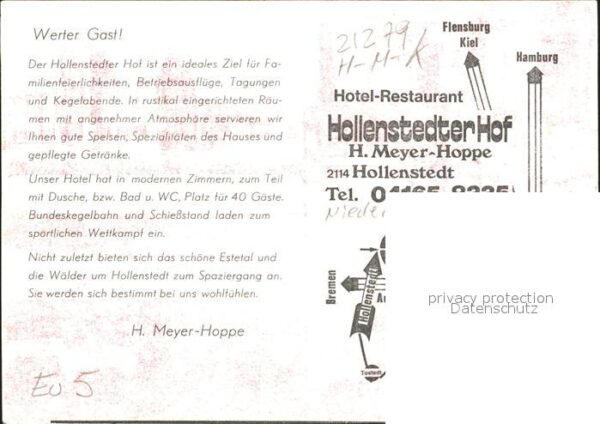 Werter Gast!
Der Hollenstedter Hof ist ein ideales Ziel für Fa-
milienfeierlichkeiten, Betriebsausflüge, Tagungen
und Kegelabende. In rustikal eingerichteten Räu-
men mit angenehmer Atmosphäre servieren wir
Ihnen gute Speisen, Spezialitäten des Hauses und
gepflegte Getränke.
Unser Hotel hat in modernen Zimmern, zum Teil
mit Dusche, bzw. Bad u. WC, Platz für 40 Gäste.
Bundeskegelbahn und Schießstand laden zum
sportlichen Wettkampf ein.
Nicht zuletzt bieten sich das schöne Estetal und
die Wälder um Hollenstedt zum Spaziergang an.
Sie werden sich bestimmt bei uns wohlfühlen.
H. Meyer-Hoppe
Eu 5
21279
H-M-K
Flensburg
Kiel
Hamburg
Hotel-Restaurant
Hollenstedter Hof
H. Meyer-Hoppe
2114 Hollenstedt
Tel. 04165-8335
Nieder
Bremen
Hollenstedt
Tostedt
privacy protection
Datenschutz